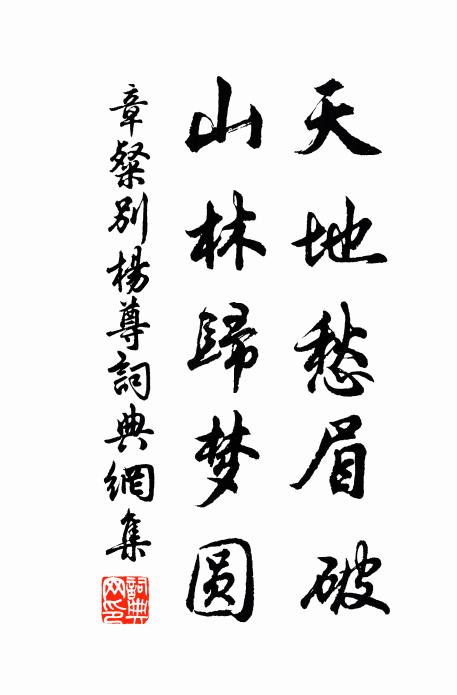 天地愁眉破
山林歸梦圆
章粲別楊尊詞典網集
詞典网印